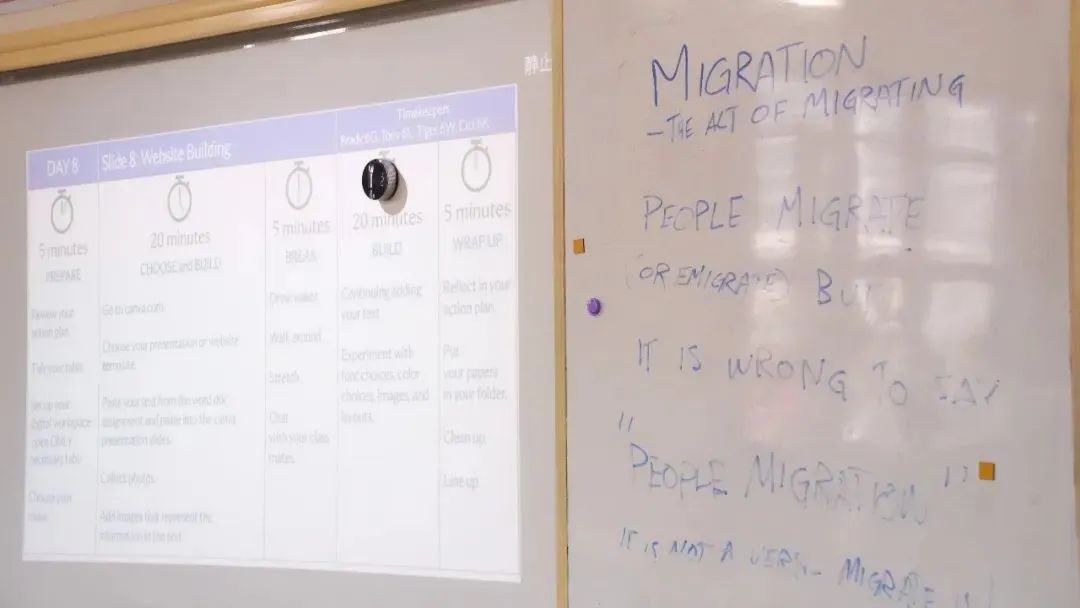 静止
Timekeepers
Brady 6G, Tony 6L, Tiger 6W, Coco 6K
DAY 8
Slide 8: Website Building
5 minutes
PREPARE
Review your
action plan.
Tidy your table.
Set up your
digital workspace
open ONLY
necessary tabs
Choose your
20 minutes
CHOOSE and BUILD
Go to canva.com
Choose your presentation or website
template.
Paste your text from the word doc
assignment and paste into the canva
presentation slides.
Collect photos.
Add images that represent the
information in the text.
5 minutes
BREAK
Drink water.
Walk around.
Stretch.
Chat
with your class
mates.
20 minutes
BUILD
Continuing adding
your text.
Experiment with
font choices, color
choices, images, and
layouts.
5 minutes
WRAP UP
Reflect in your
action plan.
Put
your papers
in your folder.
Clean up.
Line up.
MIGRATION
- THE ACT OF MIGRATING
PEOPLE MIGRATE
(OR EMIGRATE) BUT
IT IS WRONG TO SAY
"PEOPLE MIGRATION"
IT IS NOT A VERB - MIGRATE IS!